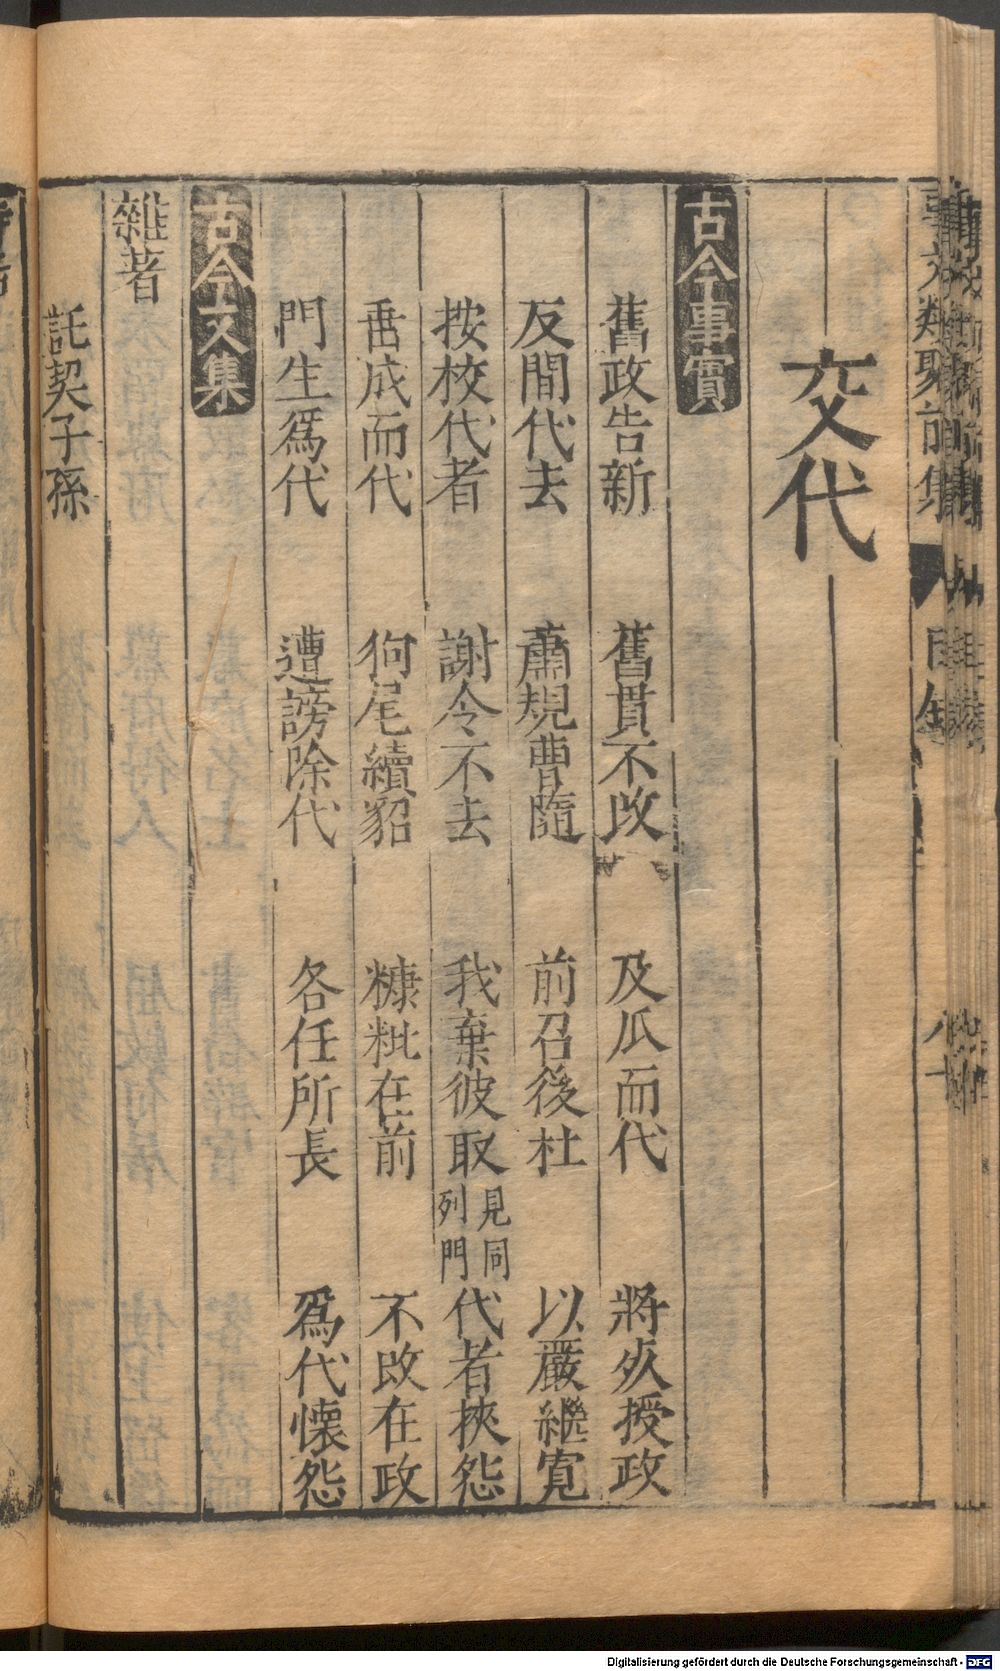 交代
古今事實
舊政告新　舊貫不改　及瓜而代　將夾授政
反間代去　蕭規曹隨　前召後杜　以嚴繼寬
按校代者　謝令不去　我棄彼取見同列門　代者挾怨
垂成而代　狗尾續貂　糠粃在前　不改在政
門生爲代　遭謗除代　各任所長　爲代懷怨
古今文集
雜著
託契子孫
Digitalisierung gefördert durch die Deutsche Forschungsgemeinschaft - DFG